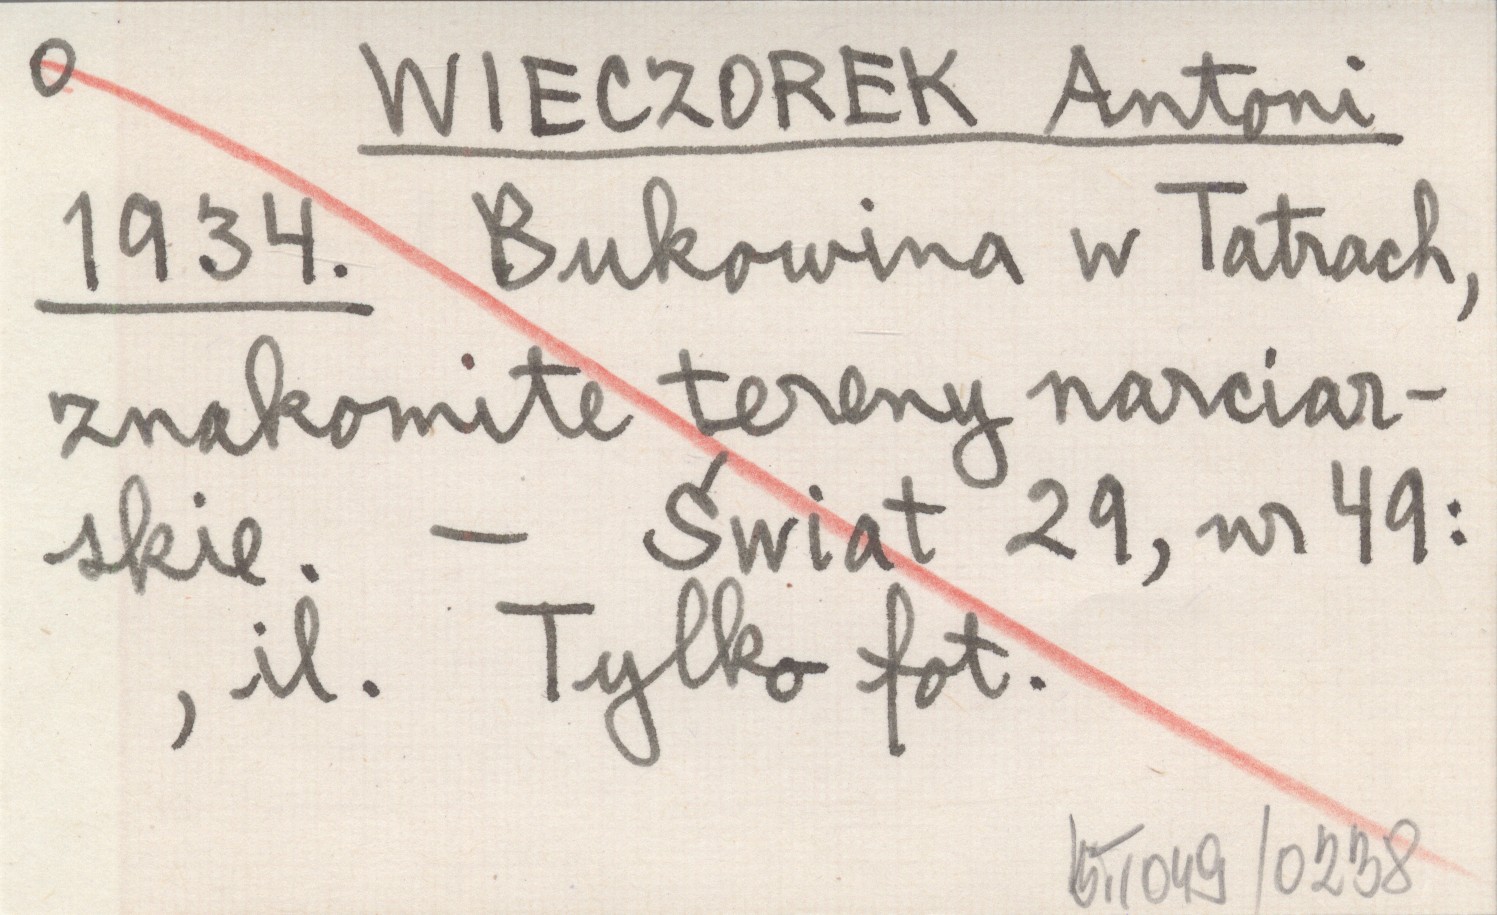 O WIECZOREK Antoni
1934. Bukowina w Tatrach,
znakomite tereny narciar-
skie. — Świat 29, nr 49:
, il. Tylko fot.
049/0238